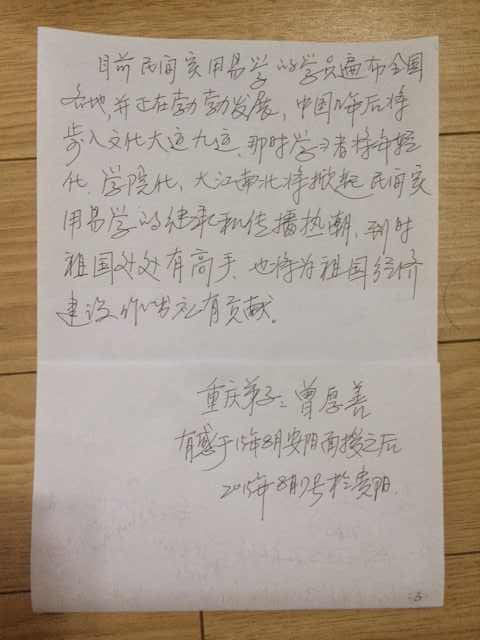 目前民间实用易学的学员遍布全国
各地,并正在勃勃发展,中国9年后将
步入文化大运九运、那时学习者将年轻
化、学院化,大江南北将掀起民间实
用易学的继承和传播热潮,到时
祖国处处有高手、也将为祖国经济
建设作出应有贡献。
重庆弟子:曾厚善
有感于15年8月安阳面授之后
2015年8月7号於贵阳.